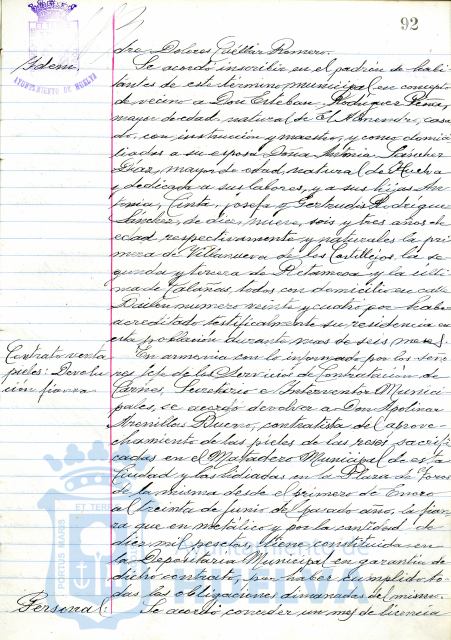 92
AYUNTAMIENTO DE HUELVA
Idem.
dre Dolores Cuéllar Romero.
Se acordó inscribir en el padrón de habi
tantes de este término municipal en concepto
de vecino a Don Esteban Rodríguez Peña,
mayor de edad, natural de El Almendro, casa
do, con instrucción y maestro, y como domici
liados a su esposa Doña Antonia Sánchez
Díaz, mayor de edad, natural de Huelva
y dedicada a sus labores, y a sus hijas An
tonia, Cinta, Josefa y Gertrudis Rodríguez
Sánchez, de diez, nueve, seis y tres años de
edad respectivamente y naturales la pri
mera de Villanueva de los Castillejos, la se
gunda y tercera de Retamosa y la últi
ma de Calañas, todos con domicilio en calle
Bailén número veinte y cuatro por haber
acreditado testificalmente su residencia en
esta población durante mas de seis meses.
Contrato venta
pieles: Devolu
ción fianza
En armonía con lo informado por los seño
res Jefe de los Servicios de Contratación de
Carnes, Secretario e Interventor Munici
pales, se acordó devolver a Don Apolinar
Arenillas Bueno, contratista del aprove
chamiento de las pieles de las reses sacrifi
cadas en el Matadero Municipal de esta
Ciudad y las lidiadas en la Plaza de Toros
de la misma desde el primero de Enero
al treinta de junio del pasado año, la fian
za que en metálico y por la cantidad de
diez mil pesetas tiene constituida en
la Depositaría Municipal en garantía de
dicho contrato, por haber cumplido to
das las obligaciones dimanadas del mismo.
Personal:
Se acordó conceder un mes de licencia
PORTUS MARIS
ET TERRAE
Ayuntamiento de